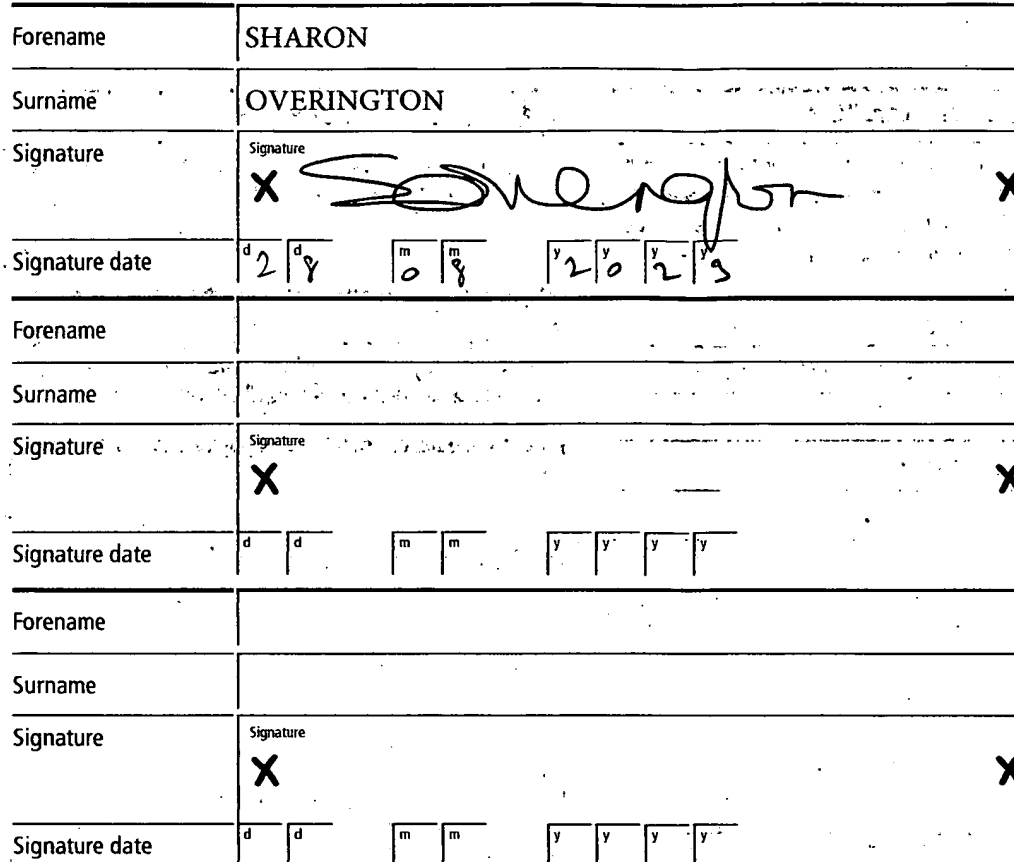 Forename SHARON
Surname OVERINGTON
Signature Signature
X SOverington X
Signature date d 2 d 8 m 0 m 8 y 2 y 0 y 2 y 3
Forename
Surname
Signature Signature
X X
Signature date d d m m y y y y
Forename
Surname
Signature Signature
X X
Signature date d d m m y y y y